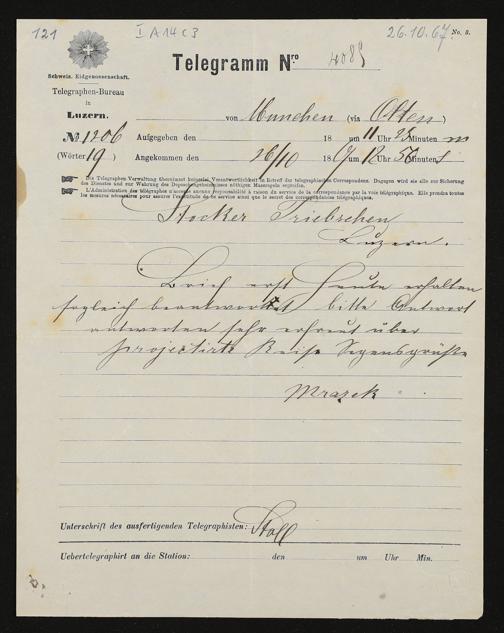 121
I A 14 c 3
26.10.67
No. 8.
Telegramm Nro 4089
Schweiz. Eidgenossenschaft.
Telegraphen-Bureau
in
Luzern.
von München (via Olten)
№ 1206 Aufgegeben den 18 um 11 Uhr 25 Minuten m
(Wörter 19) Angekommen den 26/10 1867 um 12 Uhr 50 Minuten s
Die Telegraphen Verwaltung übernimmt keinerlei Verantwortlichkeit in Betreff der telegraphischen Correspondenz. Dagegen wird sie alle zur Sicherung
des Dienstes und zur Wahrung des Depeschengeheimnisses nöthigen Massregeln ergreifen.
L'Administration des télégraphes n'accepte aucune responsabilité à raison du service de la correspondance par la voie télégraphique. Elle prendra toutes
les mesures nécessaires pour assurer l'exactitude de ce service ainsi que le secret des correspondances télégraphiques.
Stocker Triebschen
Luzern.
Brief erst heute erhalten
sogleich beantwortet bitte Antwort
antworten sehr erfreut über
projectirte Reise Segensgrüße
Mrazek
Unterschrift des ausfertigenden Telegraphisten: Stoll
Uebertelegraphirt an die Station: den um Uhr Min.